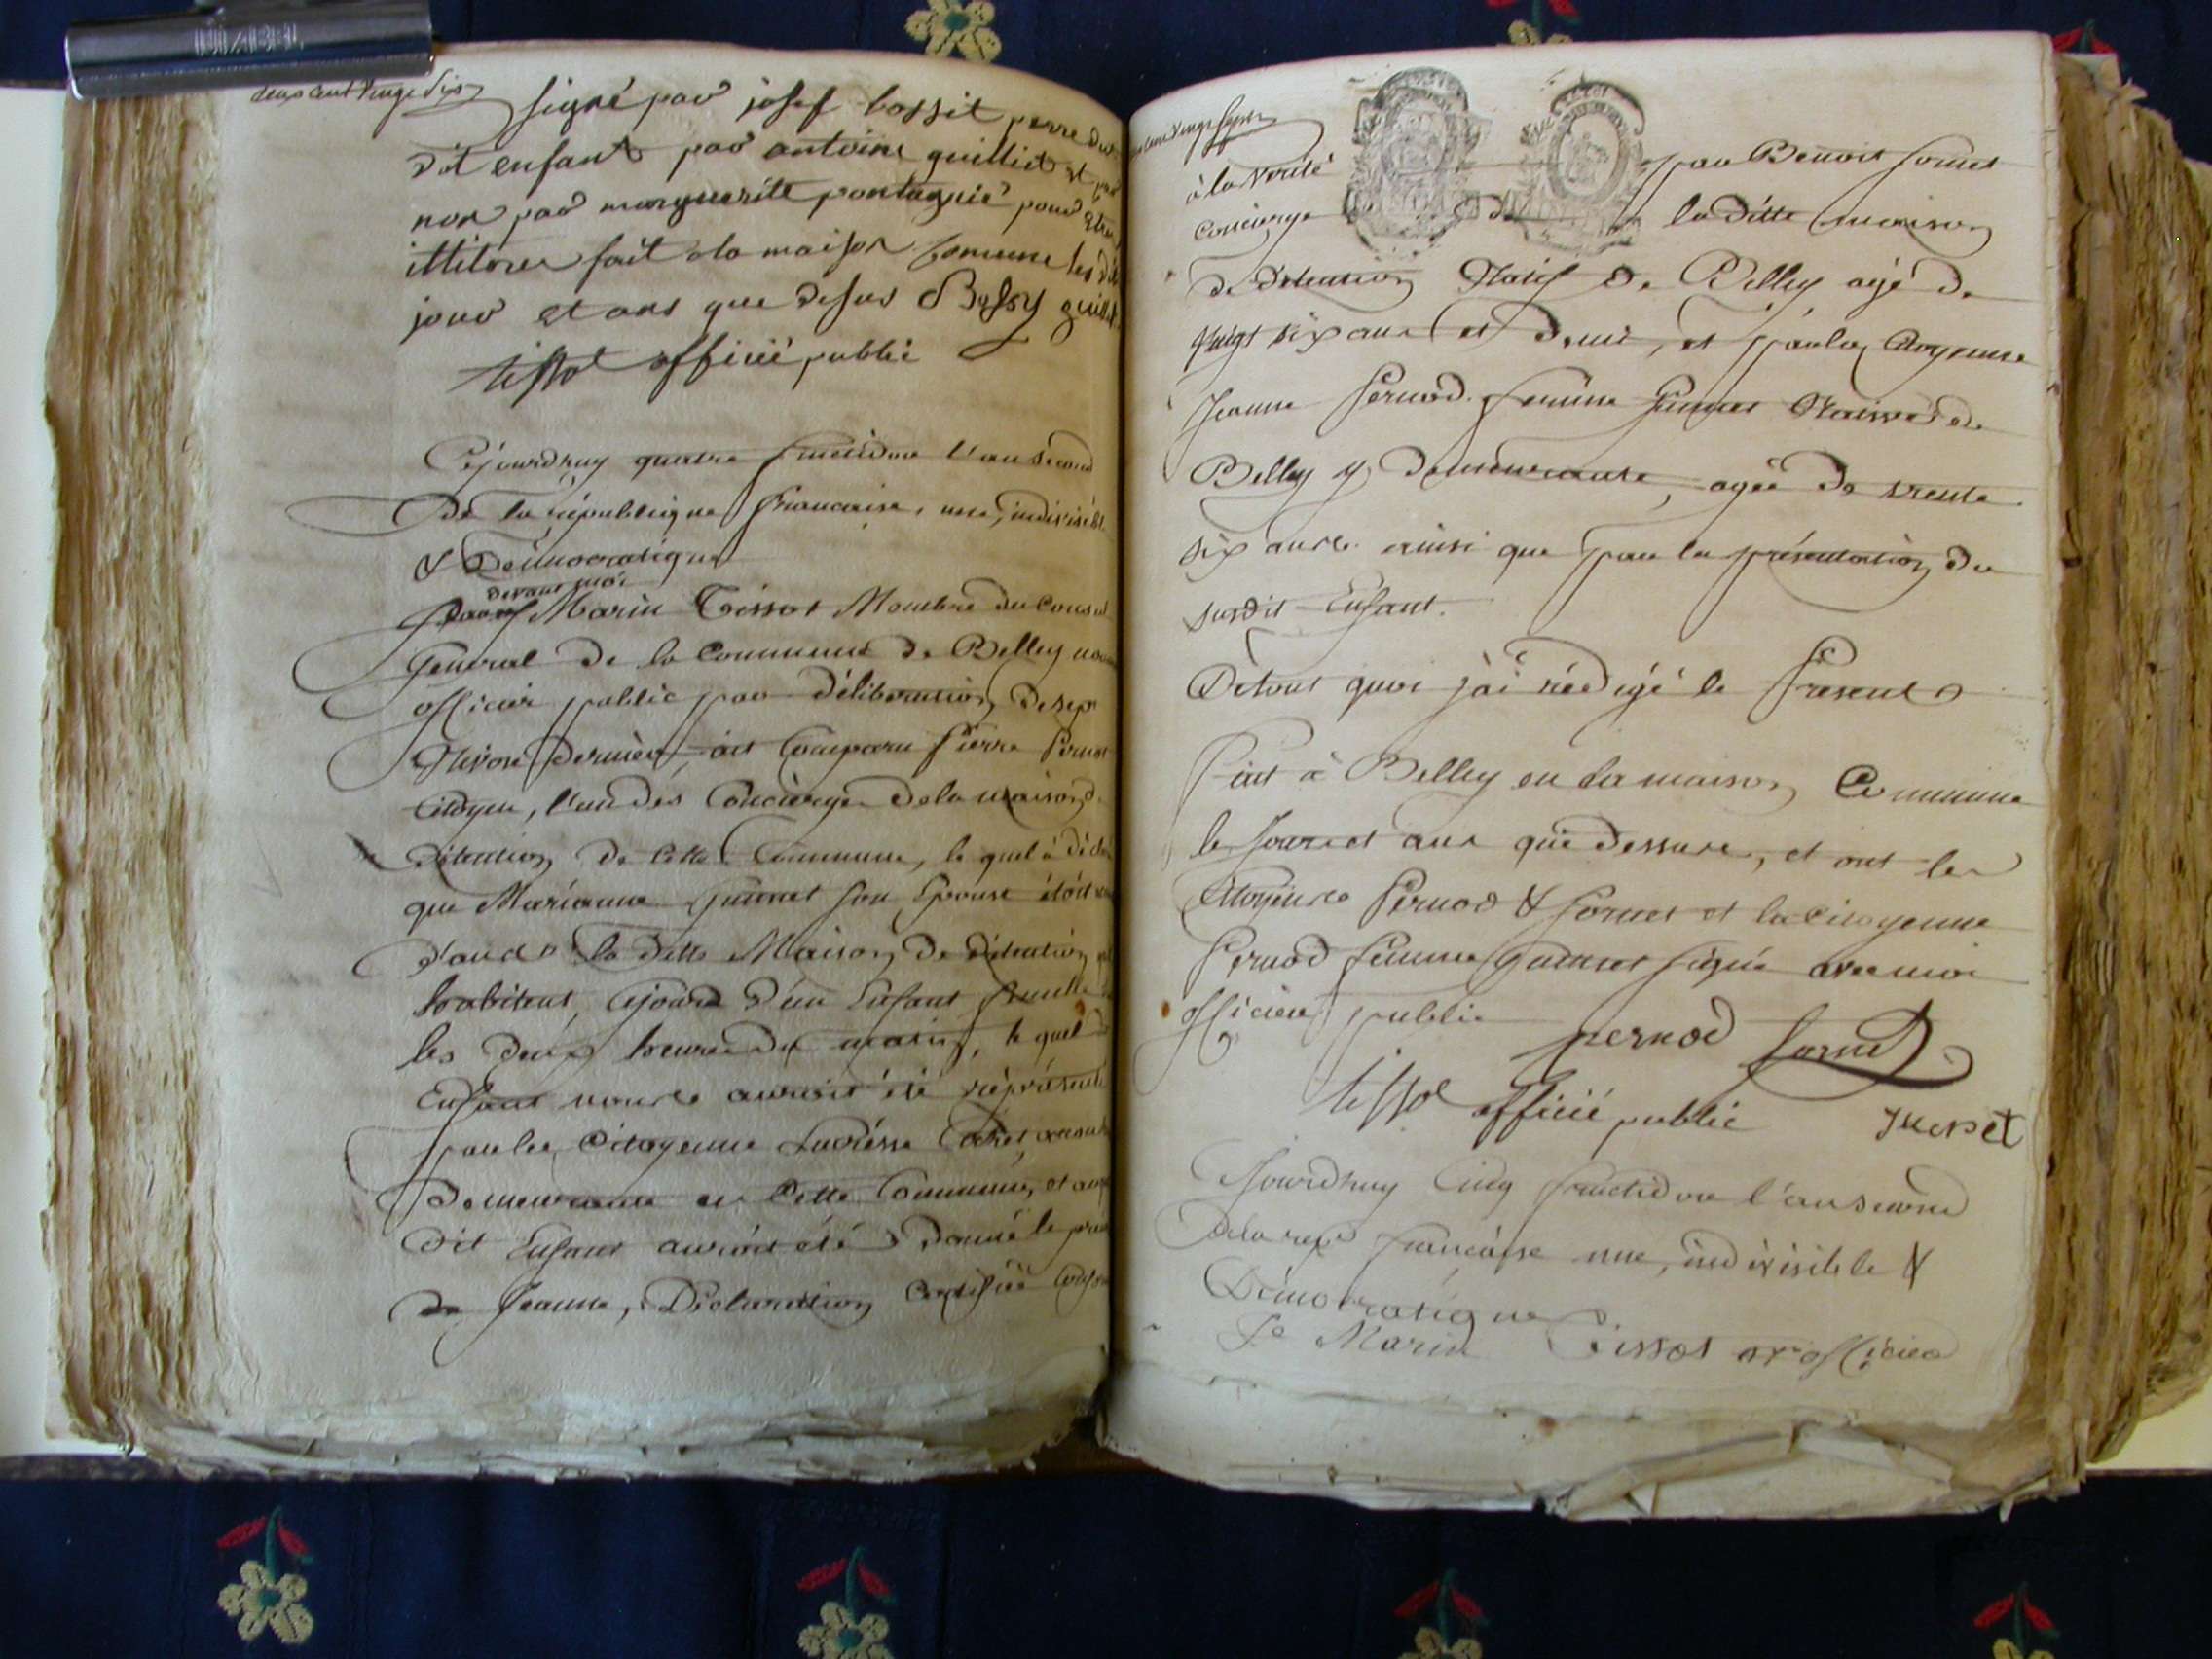 deux cent vingt six
signé par josef bossit perre du
dit enfant par antoine guilliet et
non par marguerite pontagnié pour
illitérer fait a la maison comune les
jour et ans que desus Bossy guillet
tissot officié public
Cejourdhuy quatre fructidor l'an second
De la république francaise, une, indivisible
& Démocratique
devant moi
Marin Tissot Membre du Conseil
General de la Commune de Belley
officier public par déliberation de sept
Nivose dernier, est Comparu Pierre Pernod
Citoyen, l'un des Concierges de la maison de
détention de Cette Commune, le quel à
que Mariane Guinet son Epouse étoit
dans la ditte Maison de détention
habitent, cejourd d'un Enfant femelle
les deux heures du matin, le quel
Enfant nous auroit été réprésenté
par la Citoyenne
Demeurante en Cette Commune, et
dit Enfant auroit été donné le
de Jeanne, Déclaration Certifiée
vingt sept
à la vérité par Benoit fornet
Concierge de la ditte maison
de détention Natif de Belley agé de
vingt six ans et demi, et par la Citoyenne
Jeanne Pernod femme Guinet Native de
Belley y demeurante, agée de trente
six ans ainsi que par la présentation du
susdit Enfant.
De tout quoi j'ai rédigé le Present
Fait à Belley en la maison Commune
le Jour et ans que dessus, et ont les
Citoyens Pernod & fornet et la Citoyenne
Pernod femme Guinet signé avec moi
officier public pernod fornet
tissot officié public
Cejourdhuy Cinq fructidor l'an second
de la rep francaise une, indivisible &
Démocratique
Marin Tissot officier